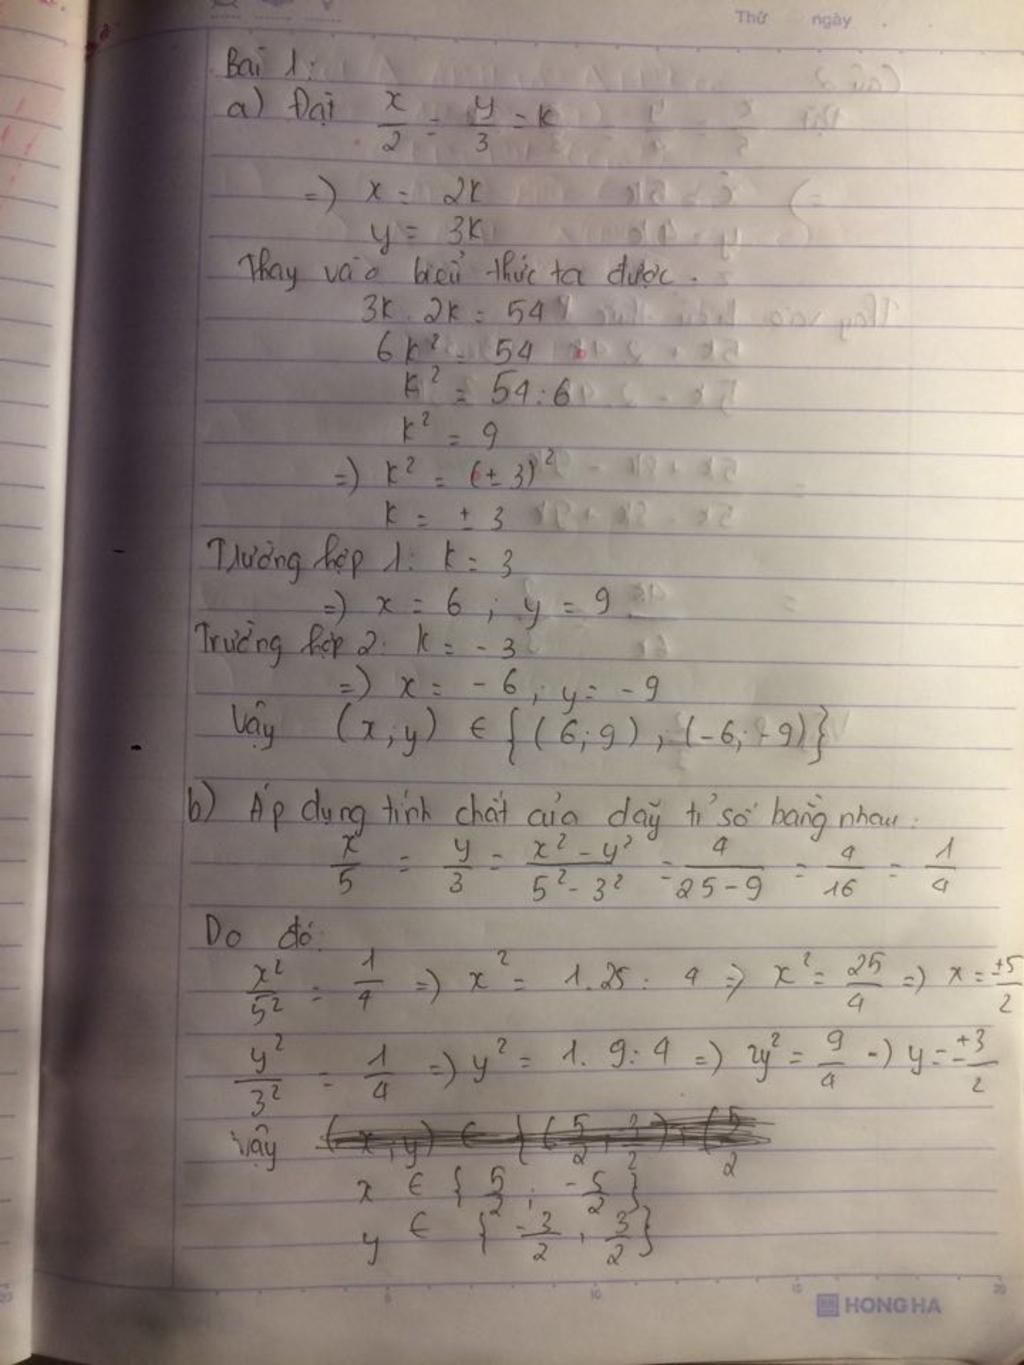 Thứ ngày
Bài 1:
a) Đặt x/2 = y/3 = k
=) x = 2k
y = 3k
Thay vào biểu thức ta được.
3k . 2k = 54
6k² = 54
k² = 54 : 6
k² = 9
=) k² = (± 3)²
k = ± 3
Trường hợp 1: k = 3
=) x = 6 ; y = 9
Trường hợp 2: k = - 3
=) x = - 6 ; y = - 9
Vậy (x ; y) ∈ {(6 ; 9) ; (-6 ; -9)}
b) Áp dụng tính chất của dãy tỉ số bằng nhau:
x/5 = y/3 = (x² - y²)/(5² - 3²) = 4/(25 - 9) = 4/16 = 1/4
Do đó:
x²/5² = 1/4 =) x² = 1.25 : 4 =) x² = 25/4 =) x = ±5/2
y²/3² = 1/4 =) y² = 1. 9 : 4 =) y² = 9/4 =) y = ±3/2
Vậy
x ∈ { 5/2 ; -5/2 }
y ∈ { -3/2 , 3/2 }
5 10 15 20
HONG HA